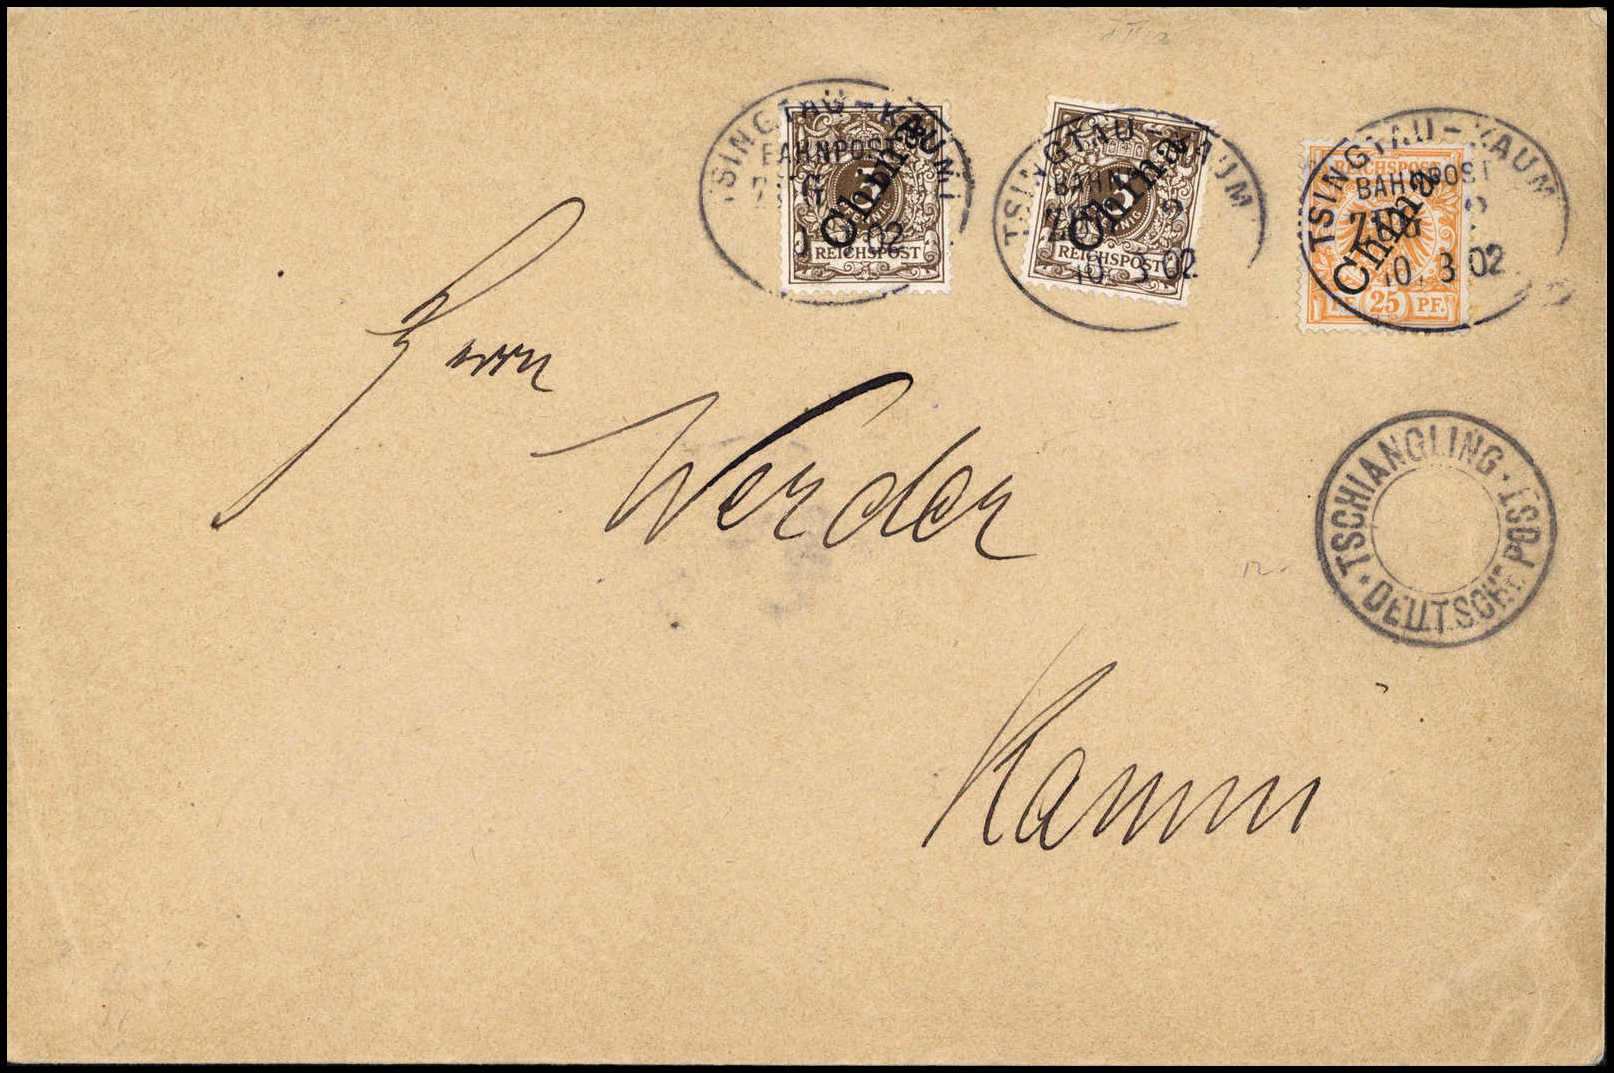 TSINGTAU - KAUMI
BAHNPOST
ZUG
02
China
3
REICHSPOST
TSINGTAU - KAUMI
BAHNPOST
ZUG 2
10. 3 02
China
3
REICHSPOST
TSINGTAU - KAUMI
BAHNPOST
ZUG 2
10. 3 02
China
REICHSPOST
PF. 25 PF.
Herrn
Werder
TSCHIANGLING · DEUTSCHE POST ·
Kaumi